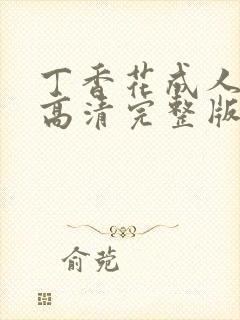 丁香花成人
高清完整版
俞苑